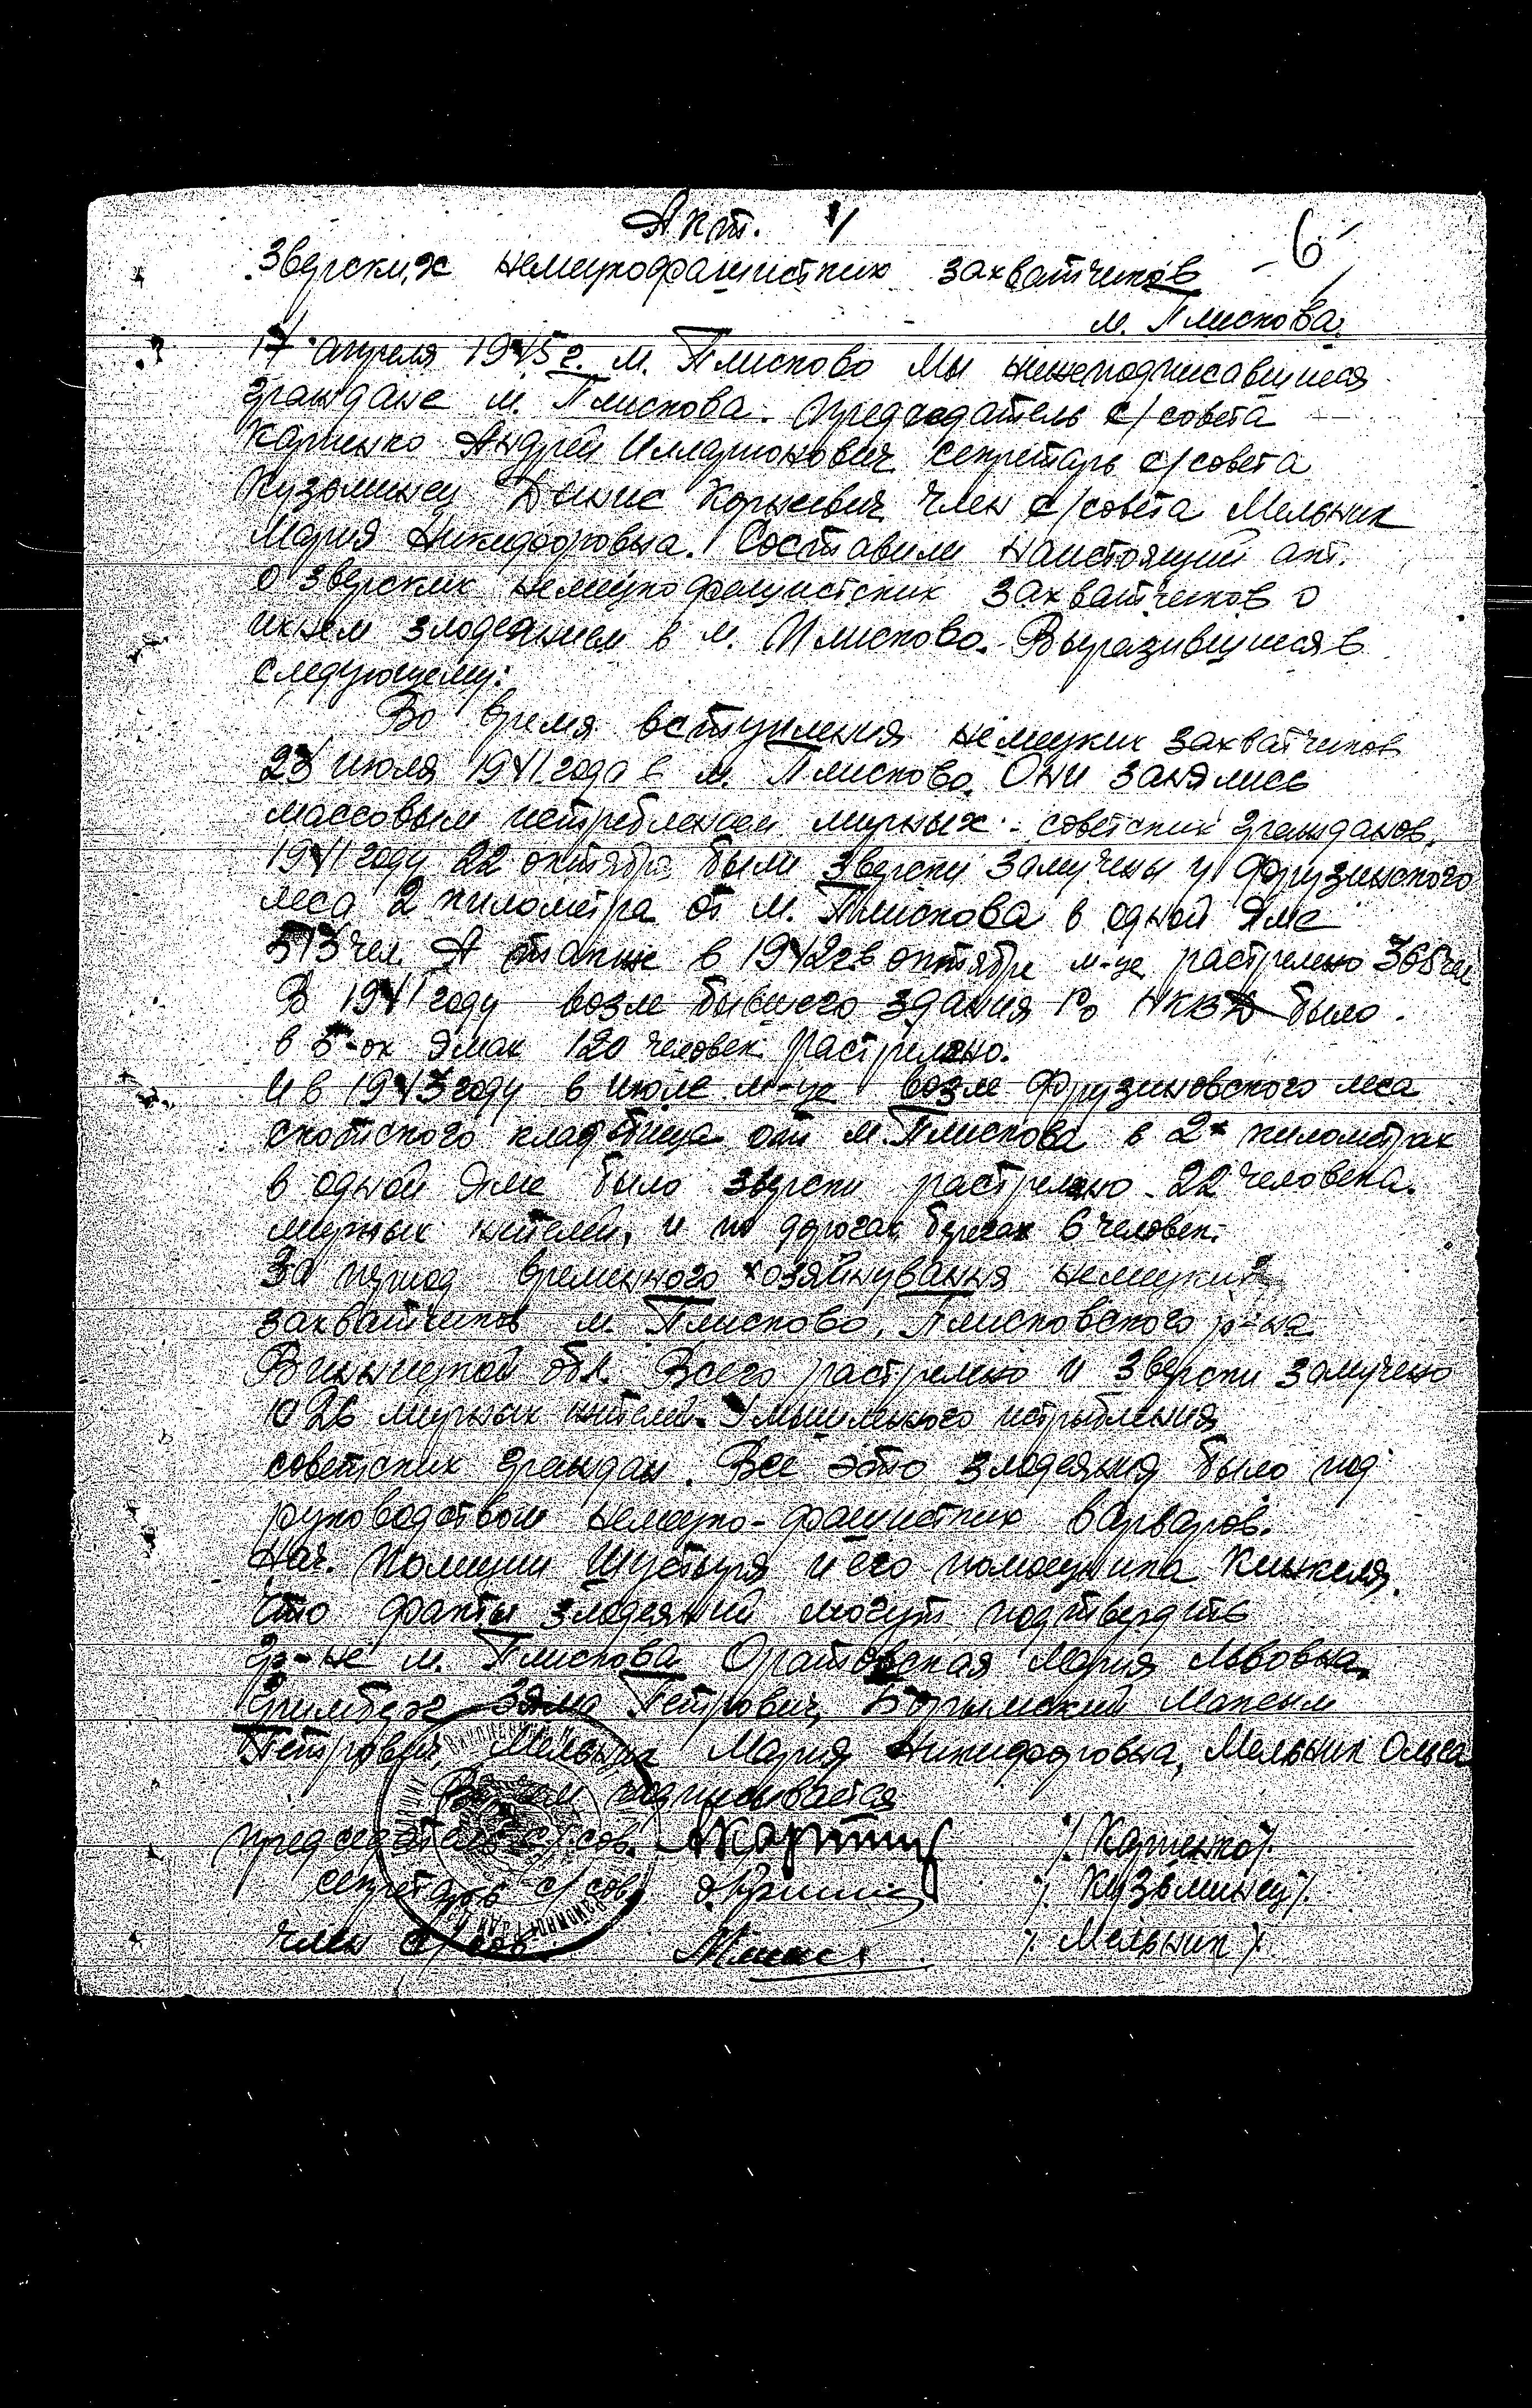 Акт. 1/
-6-
Зверских немецкофашистких захватчиков
м. Плискова.
17 апреля 1945 г. м. Плисково Мы нижеподписавшиеся
граждане м. Плискова. Председатель с/совета
Карпенко Андрей Илларионович секретарь с/совета
Кузьминец Денис Корнеевич член с/совета Мельник
Мария Никифоровна. Составили настоящий акт.
о зверских немецкофашистских захватчиков о
ихнем злодеянием в м. Плисково. Выразившиеся в
следующему:
Во время вступления немецких захватчиков
23 июля 1941 года в м. Плисково. Они занялись
массовым истреблением мирных советских гражданов.
1941 году 22 октября были зверски замучены у Фрузинского
леса 2 километра от м. Плискова в одной яме
513 чел. А также в 1942 г. в октябре м-це растрелено 365 чел
В 1941 году возле бывшего здания Ро НКВД было
в 5-ох ямах 120 человек растрелено.
И в 1943 году в июле м-це возле Фрузиновского леса
скотского кладбища от м. Плискова в 2х километрах
в одной яме было зверски растрелено 22 человека.
мирных жителей, и по дорогах 6 человек.
За период временного хозяйнування немецких
захватчиков м. Плисково, Плисковского р-на
Винницкой обл. Всего растрелено и зверски замучено
1026 мирных жителей. Умышленого истребления
советских граждан. Все это злодеяния было под
руководством немецко-фашистких варваров.
Нач. полиции Шустыря и его помощника Кинкеля.
Что факты злодеяний могут подтвердить
гр-не м. Плискова Оратовская Мария Львовна,
Зяма Петрович, Максим
Петрович, Мельник Мария Никифоровна, Мельник Ольга
В чем подписывается
председатель с/сов. /Карпенко/.
секретарь с/сов. /Кузьминец/.
член с/сов. /Мельник/.